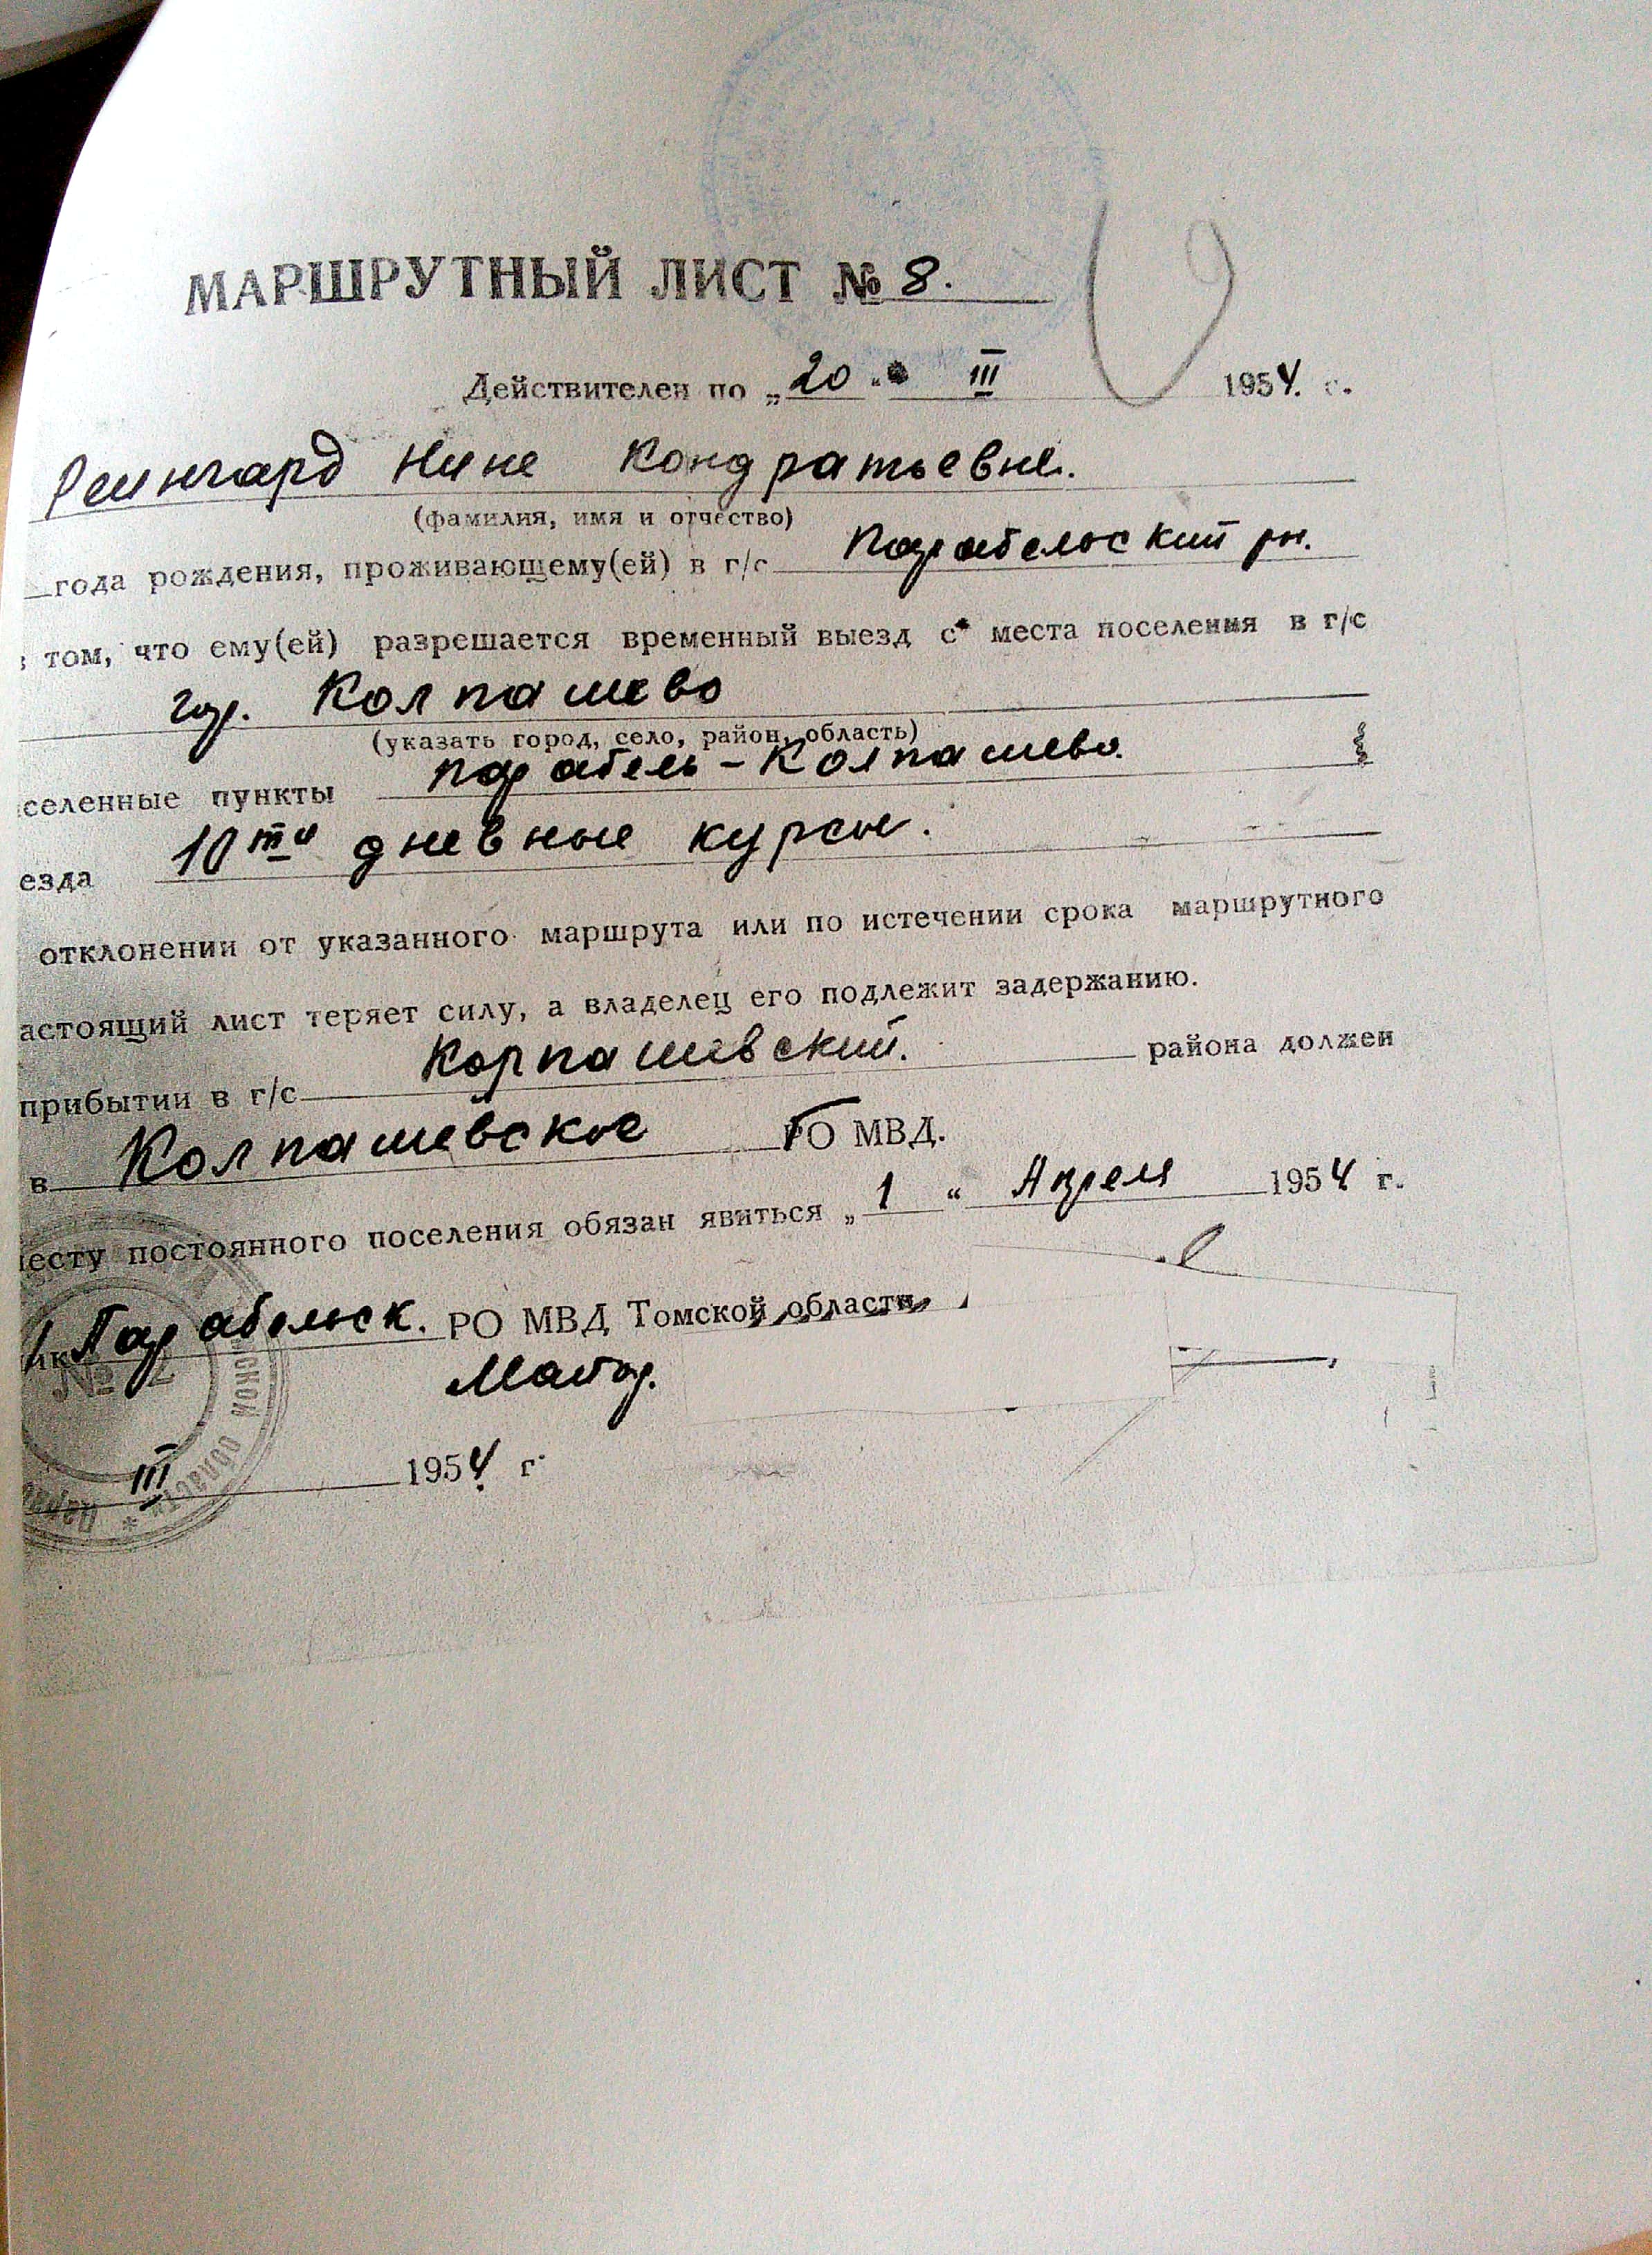 МАРШРУТНЫЙ ЛИСТ № 8.
Действителен по „20“ III 1954. г.
Реингард Нине Кондратьевне.
(фамилия, имя и отчество)
года рождения, проживающему(ей) в г/с Парабельский рн.
в том, что ему(ей) разрешается временный выезд с места поселения в г/с
гор. Колпашево
(указать город, село, район, область)
селенные пункты Парабель – Колпашево.
езда 10ти дневные курсы.
отклонении от указанного маршрута или по истечении срока маршрутного
астоящий лист теряет силу, а владелец его подлежит задержанию.
прибытии в г/с Корпашевский. района должен
в Колпашевское РО МВД.
месту постоянного поселения обязан явиться „1“ Апреля 1954 г.
ик Парабельск. РО МВД Томской области
Майор.
III 1954 г.
№ 2
ской области * Пара